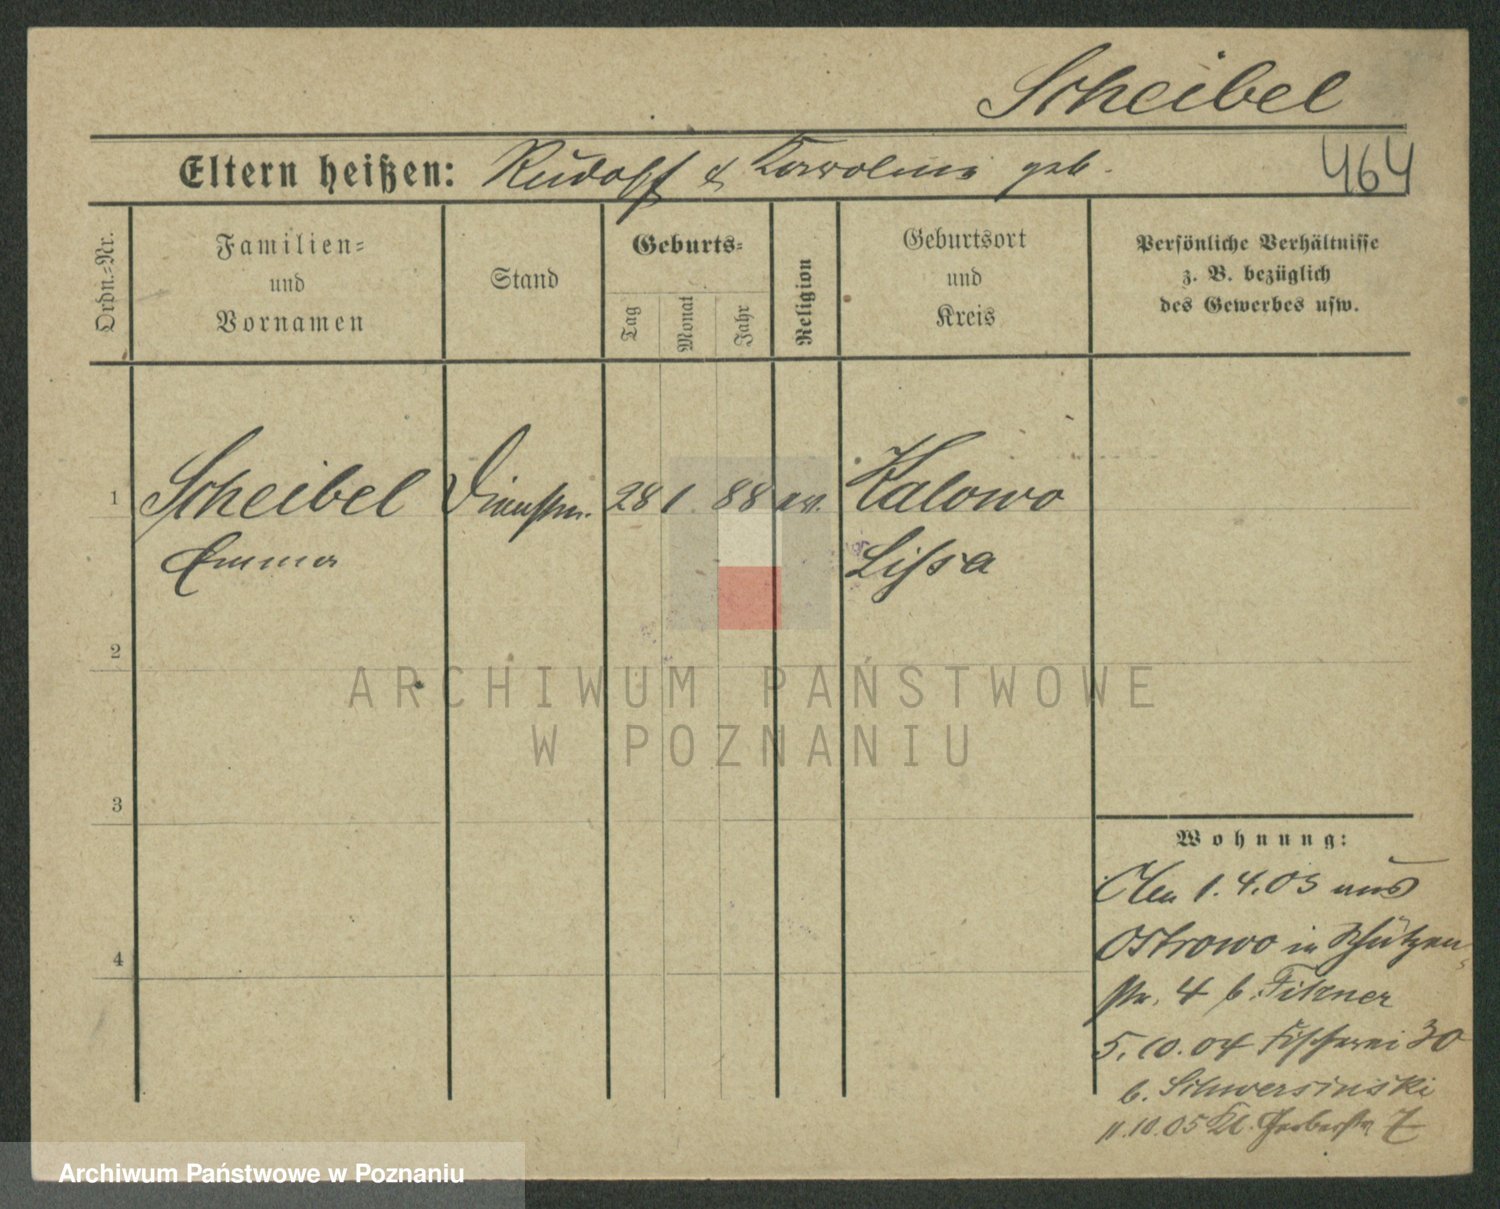 Scheibel
464
Eltern heißen: Rudolf & Karoline geb.
Ordn.=Nr.
Familien=
und
Vornamen
Stand
Geburts=
Tag
Monat
Jahr
Religion
Geburtsort
und
Kreis
Persönliche Verhältnisse
z. B. bezüglich
des Gewerbes usw.
1 Scheibel Dienstm. 28 1. 88 ev. Kalowo
Emma Lissa
2
3
4
Wohnung:
Am 1.4.03 aus
Ostrowo in Schützen-
str. 4 b.
5.10.04 Fischerei 30
b. Schwersinski
11.10.05 Kl. Gerberstr 7
ARCHIWUM PAŃSTWOWE
W POZNANIU
Archiwum Państwowe w Poznaniu